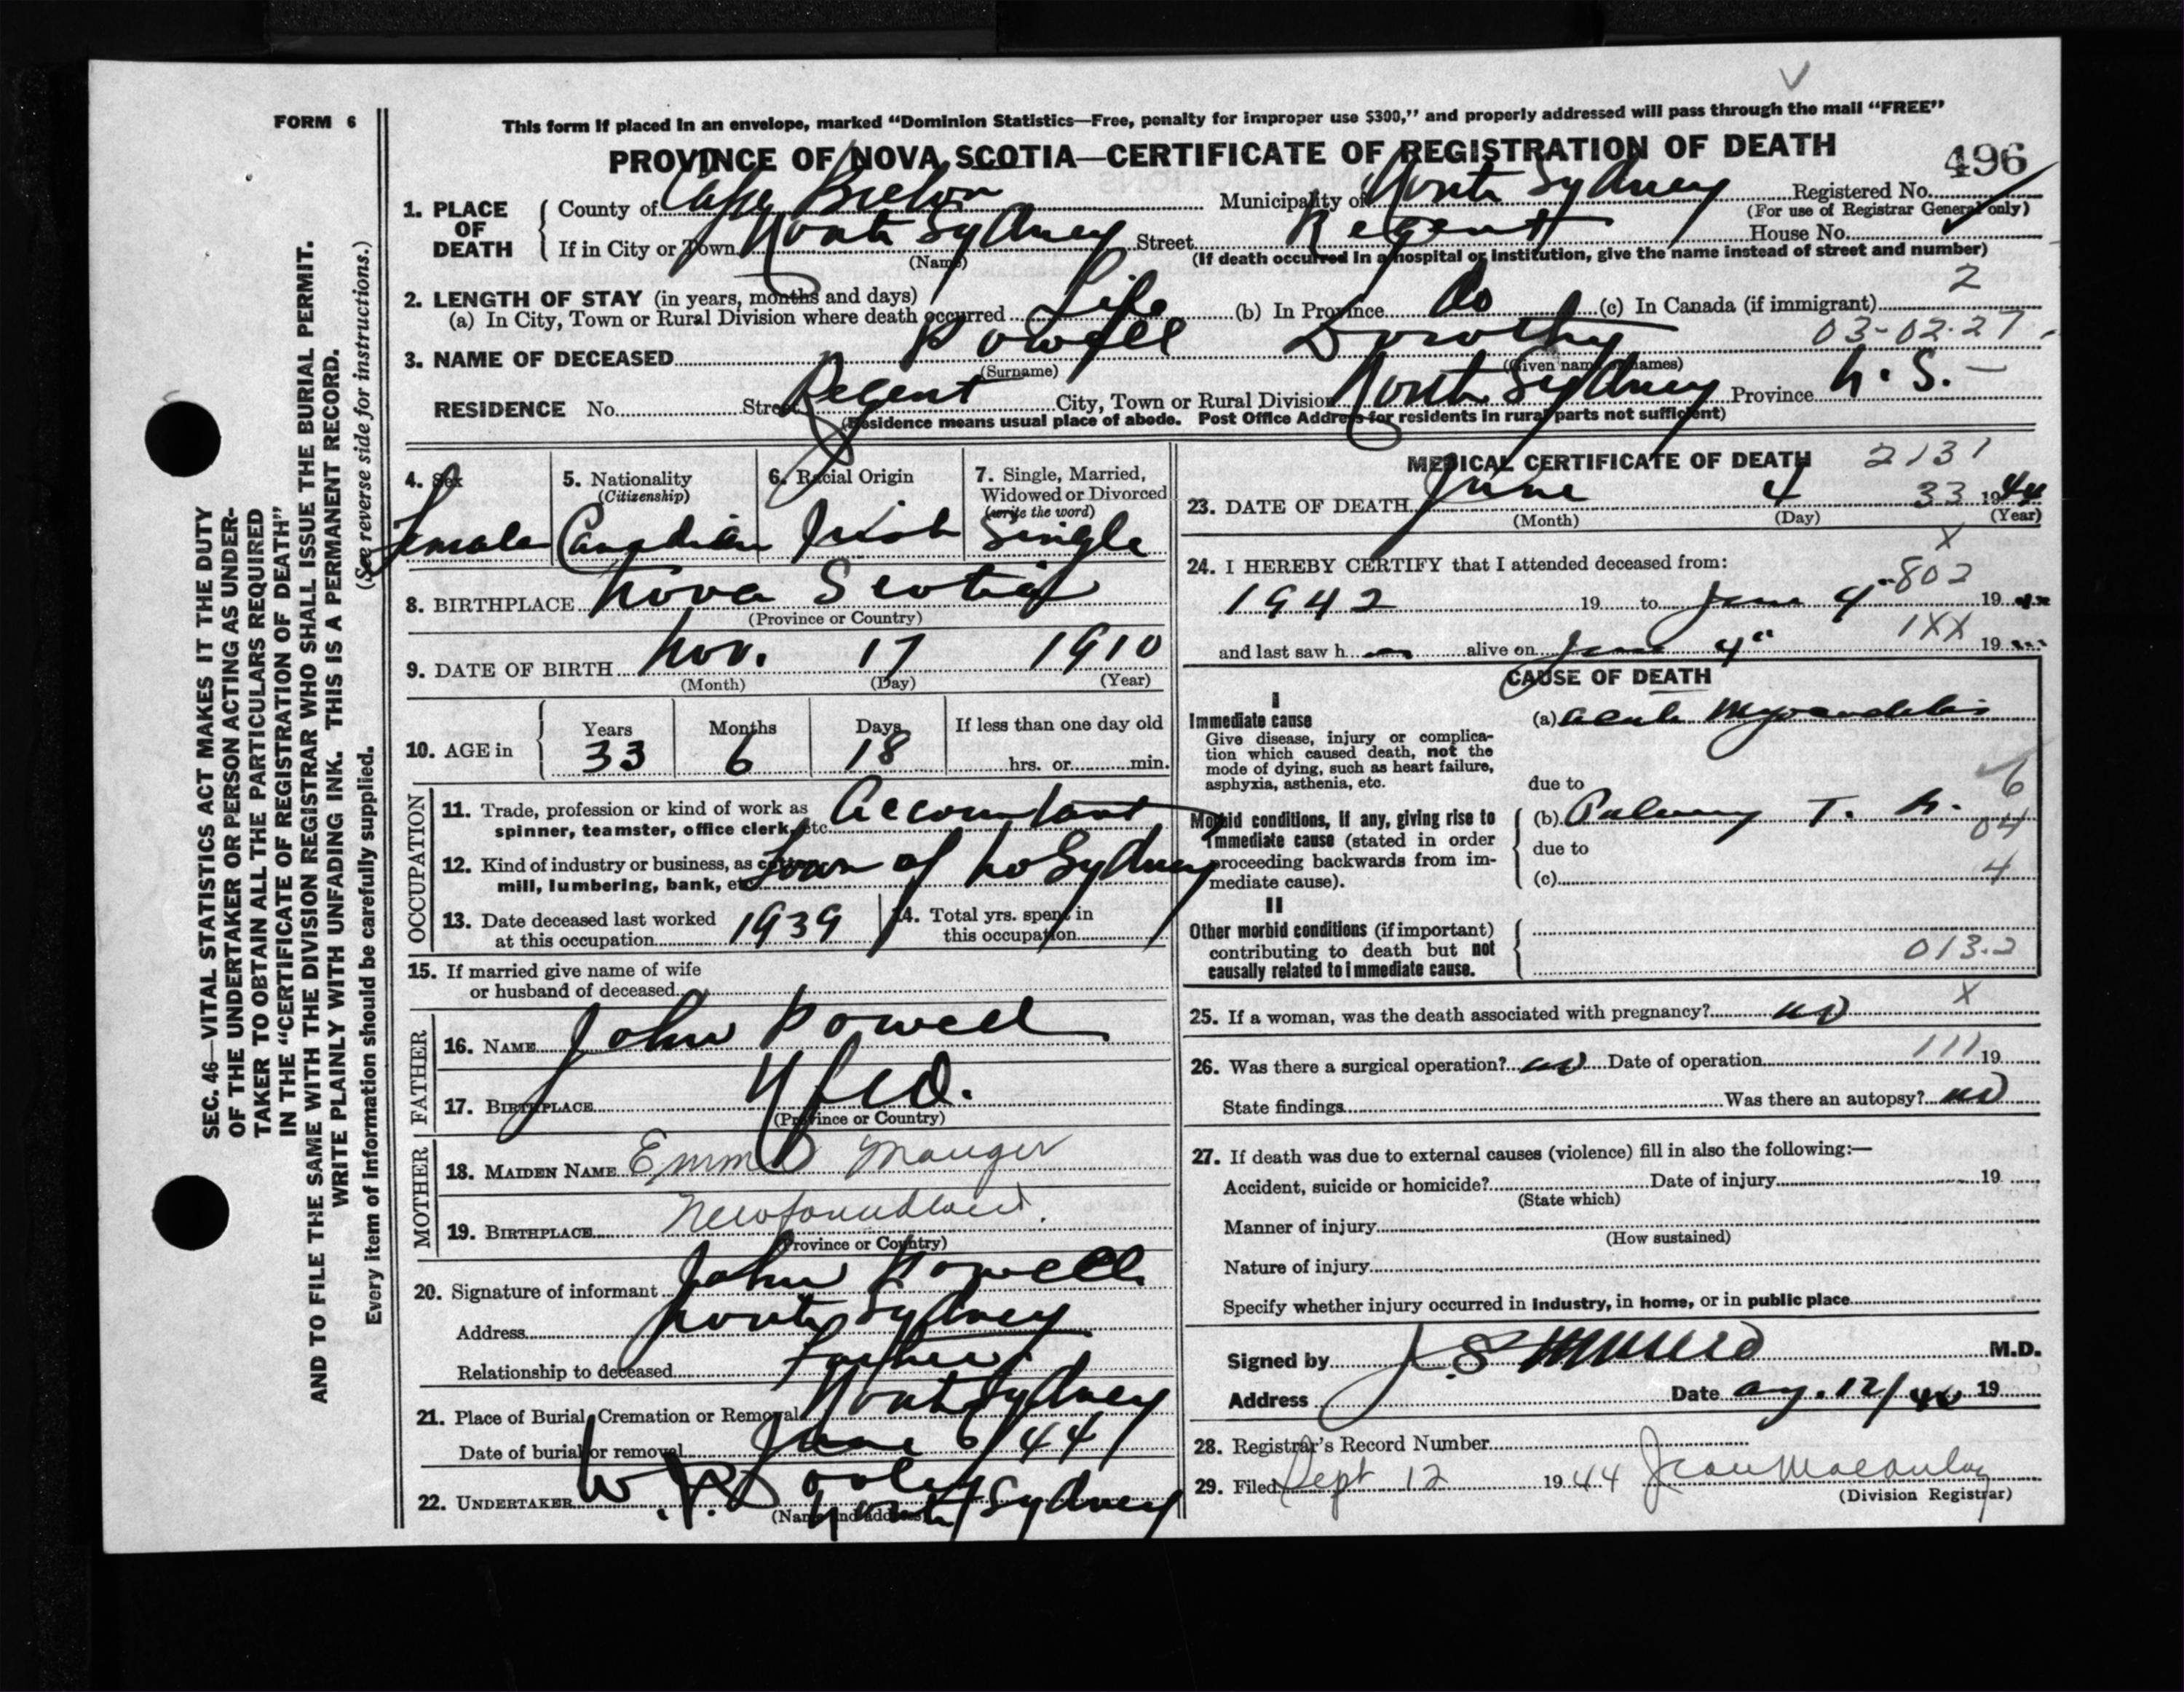 FORM 6
This form if placed in an envelope, marked “Dominion Statistics—Free, penalty for improper use $300,” and properly addressed will pass through the mail “FREE”
PROVINCE OF NOVA SCOTIA—CERTIFICATE OF REGISTRATION OF DEATH
496
1. PLACE OF DEATH
County of Cape Breton Municipality of North Sydney Registered No.
(For use of Registrar General only)
If in City or Town North Sydney Street Regent House No.
(Name) (If death occurred in a hospital or institution, give the name instead of street and number)
2. LENGTH OF STAY (in years, months and days) 2
(a) In City, Town or Rural Division where death occurred Life (b) In Province Do (c) In Canada (if immigrant)
3. NAME OF DECEASED Powell Dorothy 03-02-27
(Surname) (Given name or names)
RESIDENCE No. Street Regent City, Town or Rural Division North Sydney Province N. S.
(Residence means usual place of abode. Post Office Address for residents in rural parts not sufficient)
4. Sex
Female
5. Nationality
(Citizenship)
Canadian
6. Racial Origin
Irish
7. Single, Married,
Widowed or Divorced
(write the word)
Single
8. BIRTHPLACE Nova Scotia
(Province or Country)
9. DATE OF BIRTH Nov. 17 1910
(Month) (Day) (Year)
10. AGE in
Years Months Days If less than one day old
33 6 18 hrs. or min.
OCCUPATION
11. Trade, profession or kind of work as
spinner, teamster, office clerk, etc. Accountant
12. Kind of industry or business, as cotton
mill, lumbering, bank, etc. Town of No Sydney
13. Date deceased last worked
at this occupation 1939
14. Total yrs. spent in
this occupation
15. If married give name of wife
or husband of deceased
FATHER
16. NAME John Powell
17. BIRTHPLACE Nfld.
(Province or Country)
MOTHER
18. MAIDEN NAME Emma Mauger
19. BIRTHPLACE Newfoundland.
(Province or Country)
20. Signature of informant John Powell
Address North Sydney
Relationship to deceased Father
21. Place of Burial, Cremation or Removal North Sydney
Date of burial or removal June 6/44
22. UNDERTAKER W. P. Dooley
(Name and address) North Sydney
MEDICAL CERTIFICATE OF DEATH 2131
23. DATE OF DEATH June 4 33 1944
(Month) (Day) (Year)
X
24. I HEREBY CERTIFY that I attended deceased from:
802
1942 19 to June 4" 19 44
1XX
and last saw h alive on June 4" 19
CAUSE OF DEATH
I
Immediate cause
Give disease, injury or complica-
tion which caused death, not the
mode of dying, such as heart failure,
asphyxia, asthenia, etc.
(a) Acute Myocarditis
due to
6
Morbid conditions, if any, giving rise to
immediate cause (stated in order
proceeding backwards from im-
mediate cause).
(b) T.
04
due to
(c) 4
II
Other morbid conditions (if important)
contributing to death but not
causally related to immediate cause.
013.2
X
25. If a woman, was the death associated with pregnancy? no
26. Was there a surgical operation? no Date of operation 111 19
State findings Was there an autopsy? no
27. If death was due to external causes (violence) fill in also the following:—
Accident, suicide or homicide? Date of injury 19
(State which)
Manner of injury
(How sustained)
Nature of injury
Specify whether injury occurred in industry, in home, or in public place
Signed by J. S. Munro M.D.
Address Date Aug. 12/44 19
28. Registrar's Record Number
29. Filed Sept 12 1944 Jean Macaulay
(Division Registrar)
SEC. 46—VITAL STATISTICS ACT MAKES IT THE DUTY
OF THE UNDERTAKER OR PERSON ACTING AS UNDER-
TAKER TO OBTAIN ALL THE PARTICULARS REQUIRED
IN THE “CERTIFICATE OF REGISTRATION OF DEATH”
AND TO FILE THE SAME WITH THE DIVISION REGISTRAR WHO SHALL ISSUE THE BURIAL PERMIT.
WRITE PLAINLY WITH UNFADING INK. THIS IS A PERMANENT RECORD.
(See reverse side for instructions.)
Every item of information should be carefully supplied.